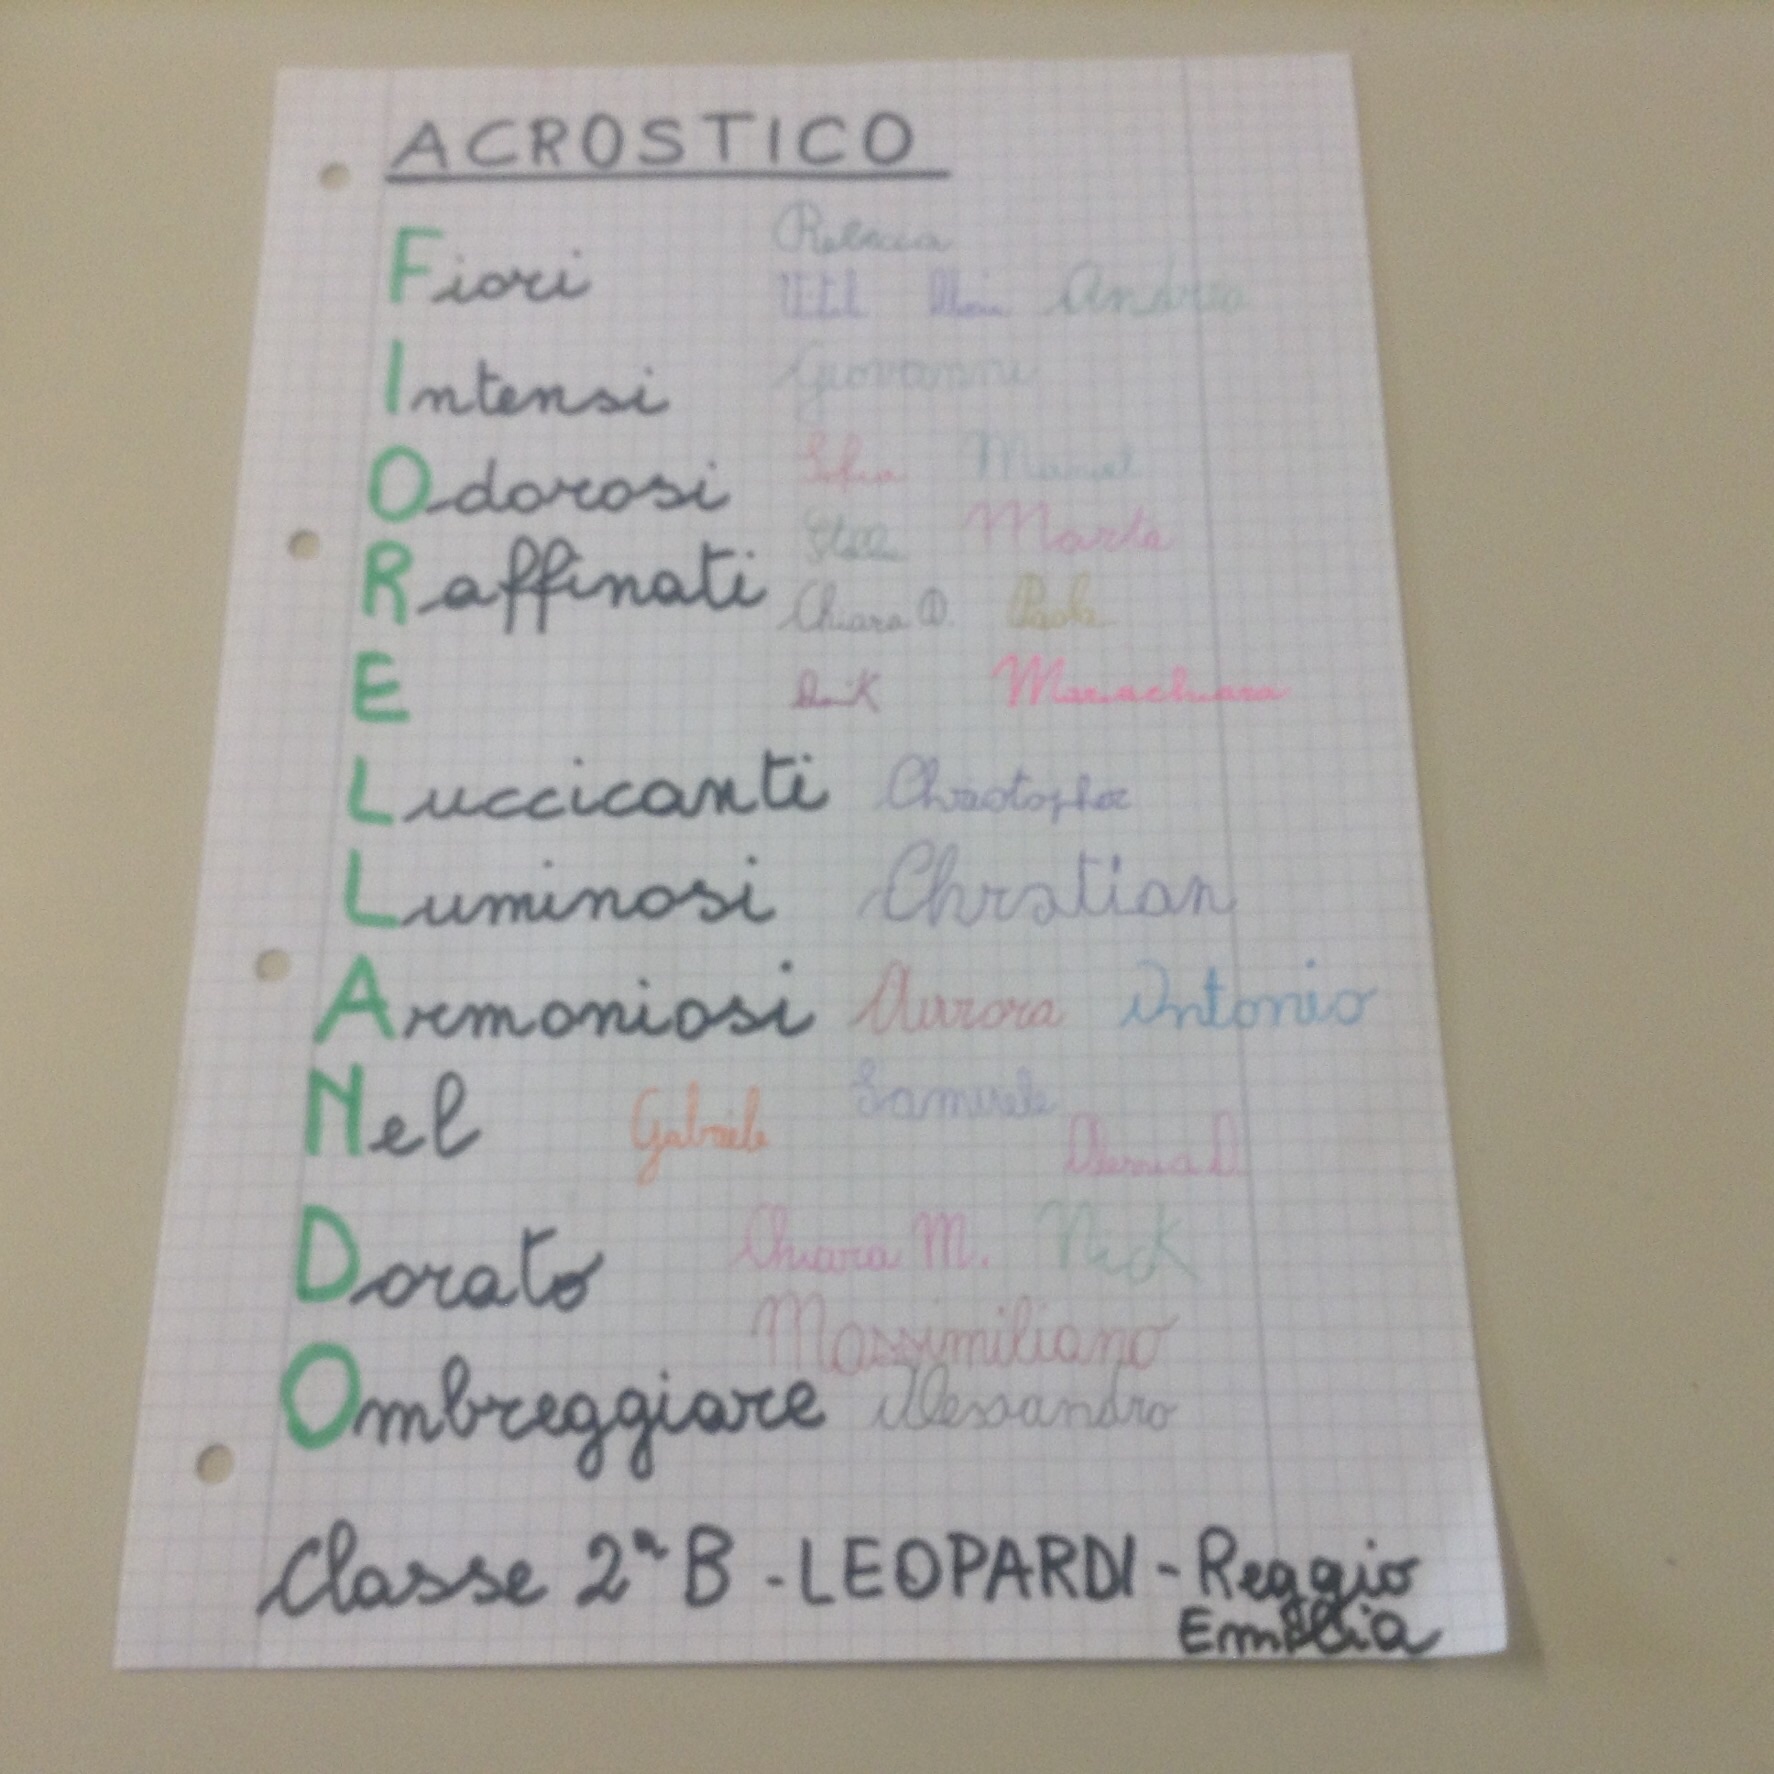 ACROSTICO
Fiori
Andrea
Intensi Giovanni
Odorosi Manuel
Marta
Raffinati Chiara D. Paola
E Mariachiara
Luccicanti Christopher
Luminosi Chrstian
Armoniosi Aurora Antonio
Nel Gabriele Samuele
Dorato Chiara M. Nick
Massimiliano
Ombreggiare Alessandro
Classe 2ª B - LEOPARDI - Reggio
Emilia